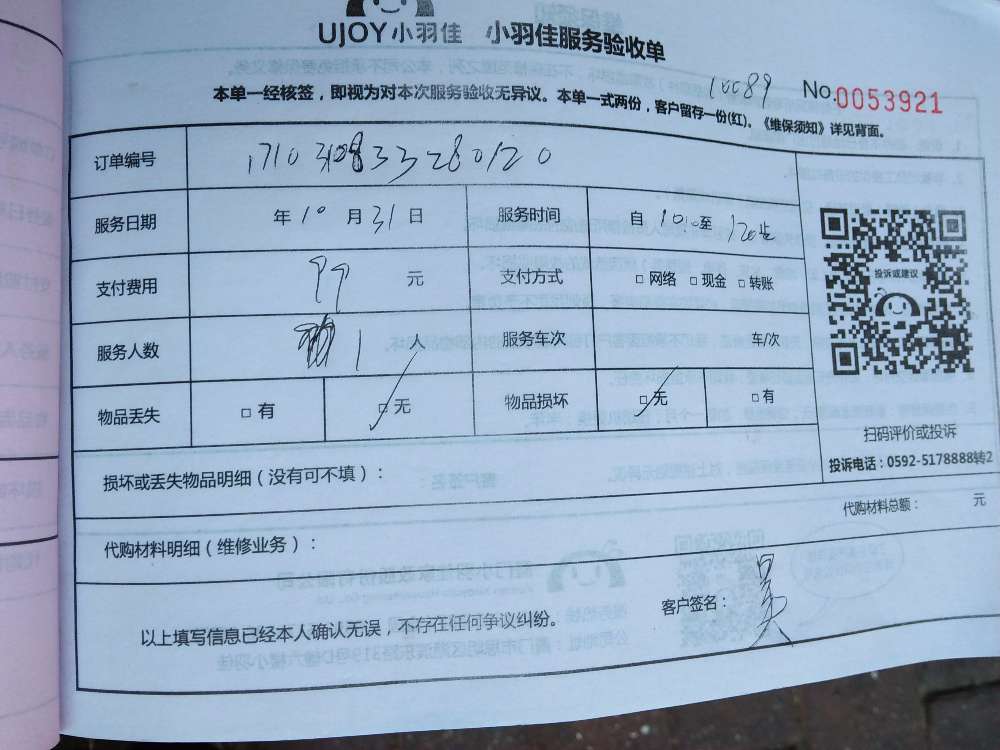 UJOY小羽佳 小羽佳服务验收单
10089 No.0053921
本单一经核签，即视为对本次服务验收无异议。本单一式两份，客户留存一份(红)。《维保须知》详见背面。
订单编号
服务日期 年 10 月 31 日 服务时间 自 1010 至
支付费用 99 元 支付方式 □ 网络 □ 现金 □ 转账
服务人数 1 人 服务车次 车/次
物品丢失 □ 有 □ 无 物品损坏 □ 无 □ 有
投诉或建议
扫码评价或投诉
投诉电话：0592-5178888转2
损坏或丢失物品明细（没有可不填）：
代购材料总额： 元
代购材料明细（维修业务）：
以上填写信息已经本人确认无误，不存在任何争议纠纷。 客户签名： 吴